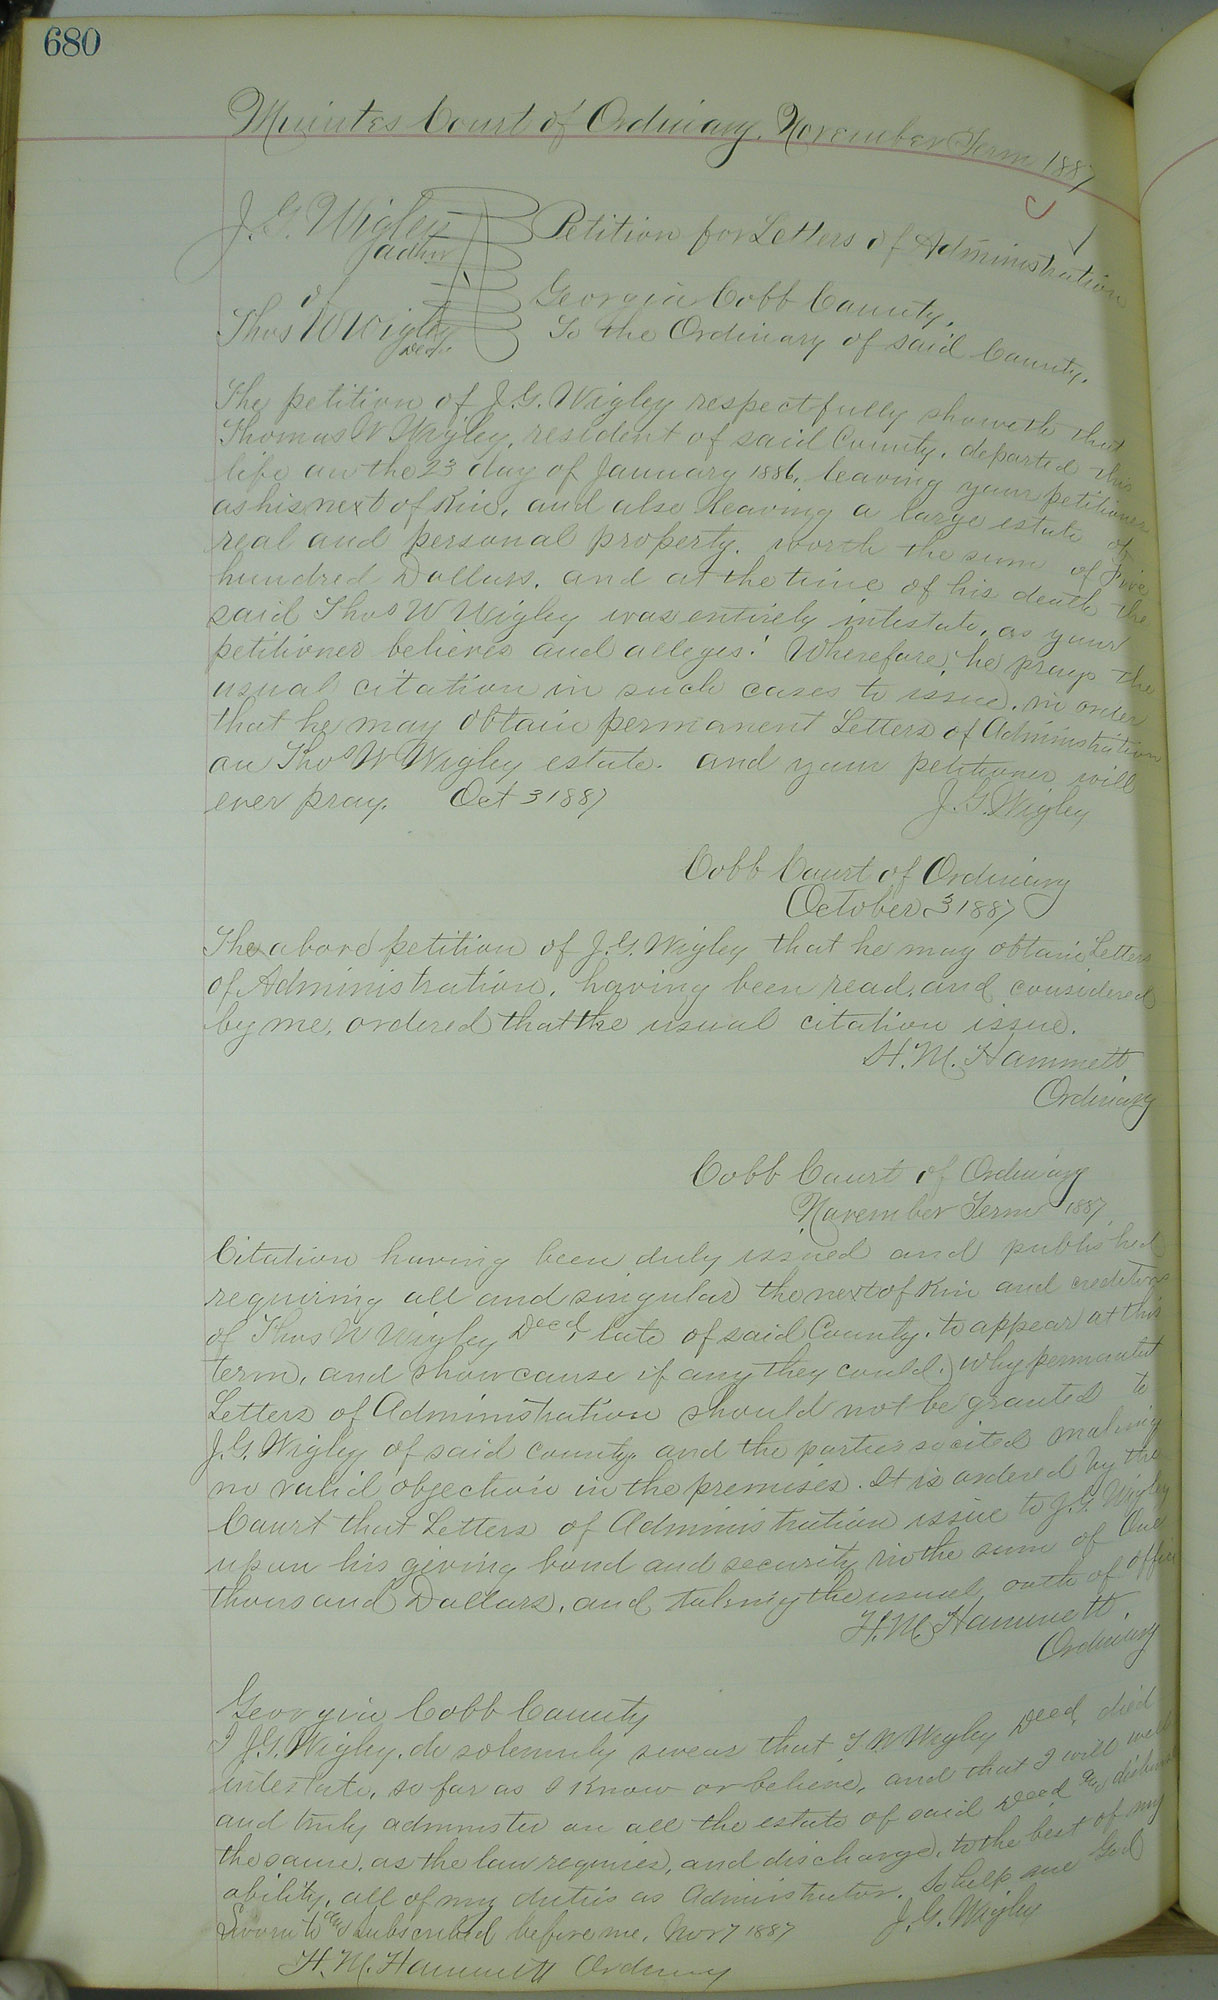 680
Minutes Court of Ordinary. November Term 1887
J. G. Wigley Petition for Letters of Administration
admr
Georgia Cobb County.
Thos W Wigley To the Ordinary of said County.
Decd
The petition of J. G. Wigley respectfully showeth that
Thomas W Wigley, resident of said County, departed this
life on the 23 day of January 1886, leaving your petitioner
as his next of Kin, and also leaving a large estate of
real and personal property, worth the sum of Five
hundred Dollars, and at the time of his death the
said Thos W Wigley was entirely intestate, as your
petitioner believes and alleges! Wherefore, he prays the
usual citation in such cases to issue, in order
that he may obtain permanent Letters of Administration
on Thos W Wigley estate. and your petitioner will
ever pray. Oct 3 1887 J. G. Wigley
Cobb Court of Ordinary
October 3 1887
The above petition of J. G. Wigley that he may obtain Letters
of Administration, having been read, and considered
by me, ordered that the usual citation issue.
H. M. Hammett
Ordinary
Cobb Court of Ordinary
November Term 1887
Citation having been duly issued and published
requiring all and singular the next of Kin and creditors
of Thos W Wigley Decd, late of said County, to appear at this
term, and show cause if any they could, why permanent
Letters of Administration should not be granted to
J. G. Wigley of said county, and the parties so cited making
no valid objection in the premises. It is ordered by the
Court that Letters of Administration issue to J. G. Wigley
upon his giving bond and security in the sum of One
thousand Dollars, and taking the usual oath of office
H. M. Hammett.
Ordinary
Georgia Cobb County
I J. G. Wigley, do solemnly swear that T W Wigley Decd, died
intestate, so far as I Know or believe, and that I will well
and truly administer on all the estate of said Decd and disburse
the same, as the law requires, and discharge, to the best of my
ability, all of my duties as Administrator. So help me God
Sworn to and subscribed before me, Nov 7 1887 J. G. Wigley
H. M. Hammett Ordinary